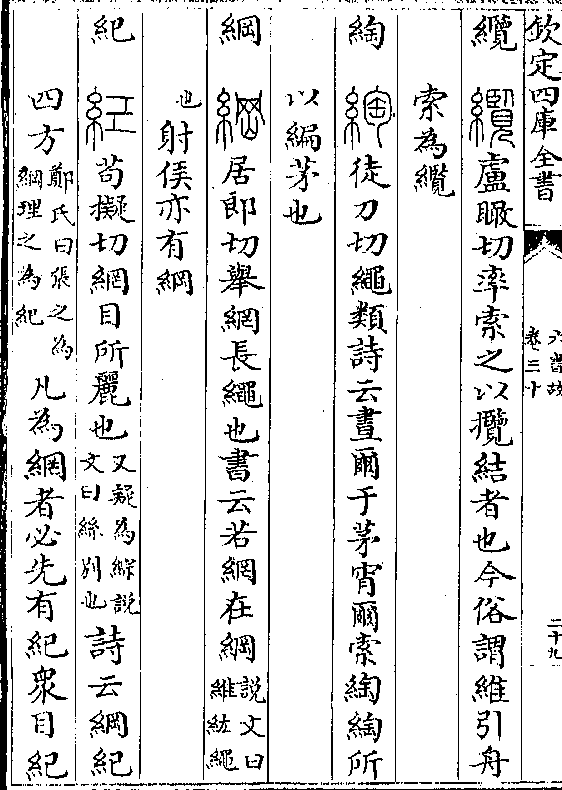 欽定四庫全書
六書故
卷三十
二十九
纜 纜 盧瞰切率索之以攬結者也今俗謂維引舟
索為纜
綯 綯 徒刀切繩類詩云晝爾于茅宵爾索綯綯所
以編茅也
綱 綱 居郎切舉網長繩也書云若網在綱說文曰維紘繩
也射侯亦有綱
紀 紀 茍擬切網目所麗也又疑為說文曰絲别也詩云綱紀
四方鄭氏曰張之為綱理之為紀凡為網者必先有紀衆目紀